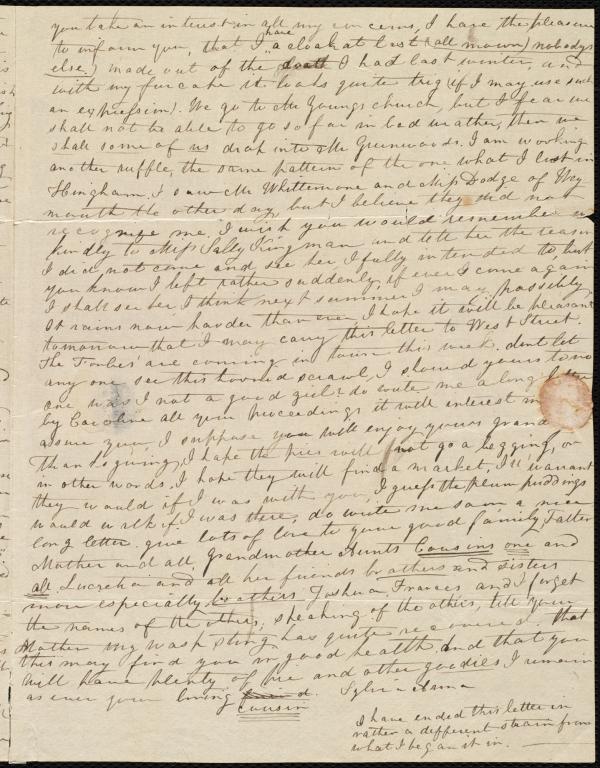 you take an interest in all my concerns, I have the pleasure
to inform you, that I have a cloak at last (all mown) nobodys
else) made out of the I had last winter, and
with my fur cape it looks quite trig (if I may use such
an expression). We go to Mr Youngs church, but I fear we
shall not be able to go so far in bad weather, then we
shall some of us drop into Mr Greenwoods. I am working
another ruffle, the same pattern of the one what I lost in
Hingham. I saw Mr Whittemore and Miss Dodge of Wey
mouth the other day, but I believe they did not
recognize me, I wish you would remember me
kindly to Miss Sally Kingman and tell her the reason
I did not come and see her, I fully intended to, but
you know I left rather suddenly, if ever I come again
I shall see her I think next summer I may possibly.
It rains now harder than ever I hope it will be pleasant
tomorrow that I may carry this letter to West Street.
The Forbes' are coming in town this week. dont let
any one see this horrid scrawl, I showed yours to no
one was I not a good girl? do write me a long letter
by Caroline all your proceedings it will interest me I
assure you, I suppose you will enjoy yours grand
Thanksgiving, I hope the pies will not go a begging, or
in other words, I hope they will find a market, I'll warrant
they would if I was with you, I guess the plum puddings
would walk if I was there, do write me soon a nice
long letter. give lots of love to your good family, Father
Mother and all, grandmother Aunts Cousins one and
all Lucretia and all her friends brothers and sisters
more especially brothers Joshua, Francis and I forget
the names of the others, speaking of the others, tell your
Mother my wasp sting has quite recovered. That
this may find you in good health and that you
will have plenty of pie and other goodies I remain
as ever your loving cousin Sylvia Ama
I have ended this letter in
rather a different strain from
what I began it in.